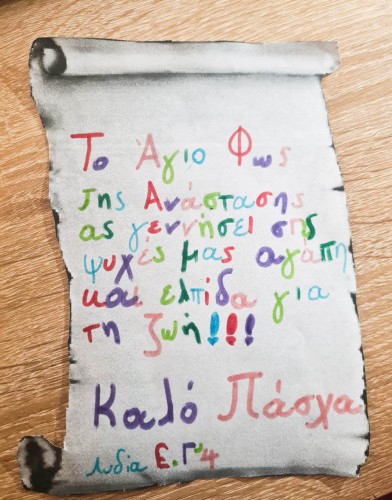 Το Άγιο Φως
της Ανάστασης
ας γεννήσει στις
ψυχές μας αγάπη
και ελπίδα για
τη ζωή!!!
Καλό Πάσχα
Λυδία Ε. Γ4